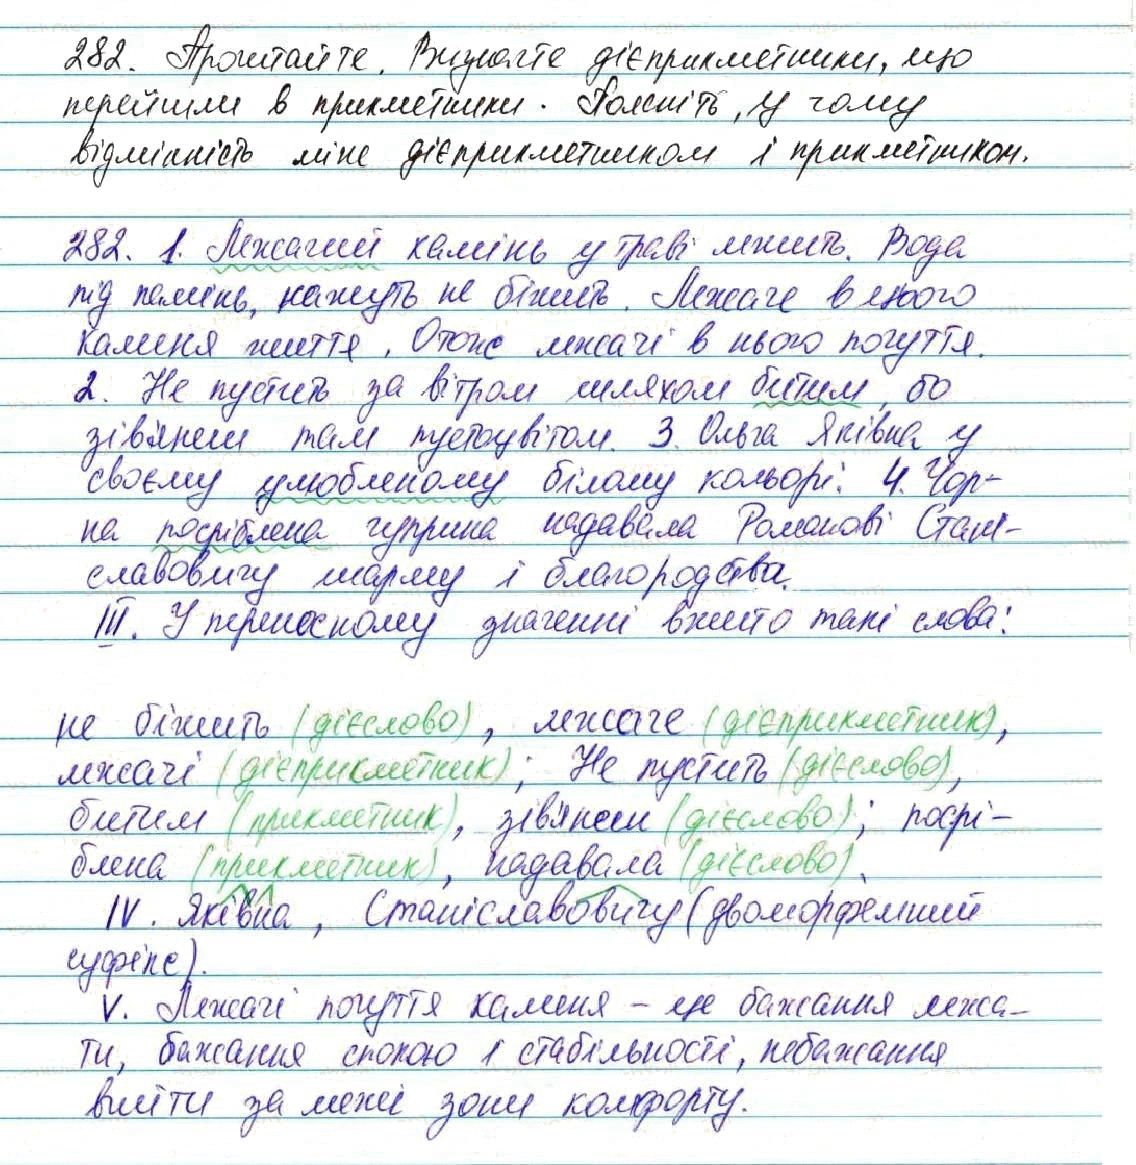 282. Прочитайте. Визначте дієприкметники, що
перейшли в прикметники. Поясніть, у чому
відмінність між дієприкметником і прикметником.
282. 1. Лежачий камінь у траві лежить. Вода
під камінь, кажуть не біжить. Лежаче в нього
каменя життя. Отож лежачі в нього почуття.
2. Не пустить за вітром шляхом битим, бо
зів'янеш там пустоцвітом. 3. Ольга Яківна у
своєму улюбленому білому кольорі. 4. Чор-
на посріблена чуприна надавала Романові Стані-
славовичу шарму і благородства.
III. У переносному значенні вжито такі слова:
не біжить (дієслово), лежаче (дієприкметник),
лежачі (дієприкметник); Не пустить (дієслово),
битим (прикметник), зів'янеш (дієслово); посрі-
блена (прикметник), надавала (дієслово).
IV. Яківна, Станіславовичу (двоморфемний
суфікс).
V. Лежачі почуття каменя – це бажання лежа-
ти, бажання спокою і стабільності, небажання
вийти за межі зони комфорту.